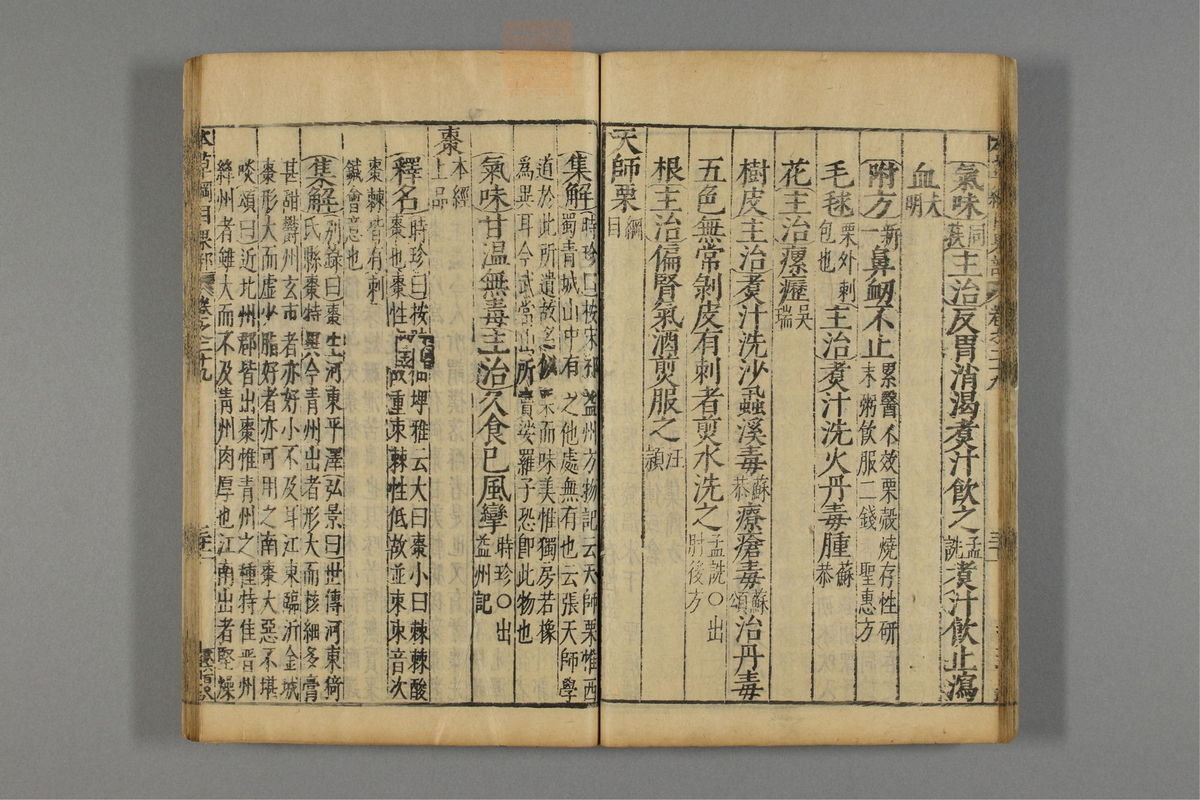 氣味同莢主治反胃消渴煮汁飲之孟詵煮汁飲止瀉
血大明
附方新一鼻衄不止累醫不效栗殼燒存性研末粥飲服二錢聖惠方
毛毬栗外刺包也主治煮汁洗火丹毒腫蘇恭
花主治瘰癧吳瑞
樹皮主治煮汁洗沙蝨溪毒蘇恭療瘡毒蘇頌治丹毒
五色無常剝皮有刺者煎水洗之孟詵○出肘後方
根主治偏腎氣酒煎服之汪穎
天師栗綱目
集解時珍曰按宋祁益州方物記云天師栗惟西蜀青城山中有之他處無有也云張天師學
道於此所遺故名似栗而味美惟獨房若橡為異耳今武當山所賣娑羅子恐即此物也
氣味甘溫無毒主治久食已風攣時珍○出益州記
棗本經上品
釋名時珍曰按陸佃埤雅云大曰棗小曰棘棘酸棗也棗性高故重朿棘性低故並朿朿音次
棗棘皆有刺鍼會意也
集解别錄曰棗生河東平澤弘景曰世傳河東猗氏縣棗特異今青州出者形大而核細多膏
甚甜鬱州玄市者亦好小不及耳江東臨沂金城棗形大而虛少脂好者亦可用之南棗大惡不堪
啖頌曰近北州郡皆出棗惟青州之種特佳晉州絳州者雖大而不及青州肉厚也江南出者堅燥
本草綱目果部 卷之二十九